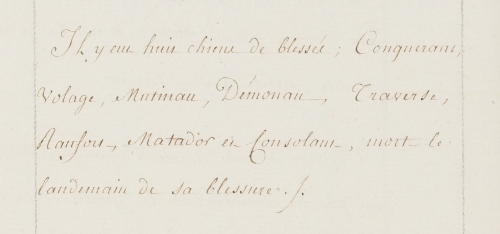 Il y eut huit chiens de blessés; Conquerant,
Volage, Mutinau, Démonau, Traverse,
Ranfort, Matador et Consolant, mort le
landemain de sa blessure.